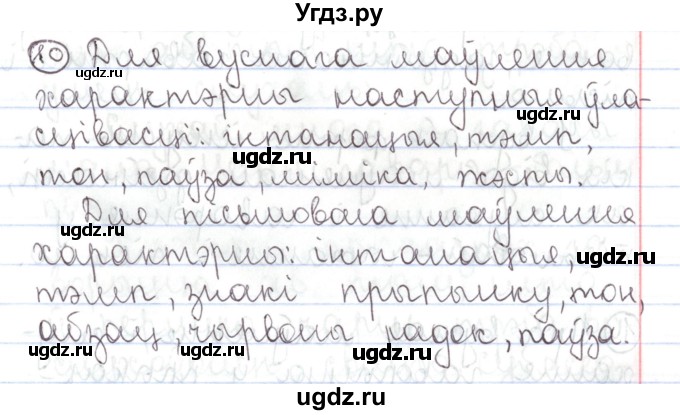 Угдз.ру
10 Для вуснага маўлення
характэрны наступныя ўла-
сцівасці: інтанацыя, тэмп,
тон, паўза, міміка, жэсты.
Для пісьмовага маўлення
характэрны: інтанацыя,
тэмп, знакі прыпынку, тон,
абзац, чырвоны радок, паўза.
ugdz.ru
ugdz.ru
ugdz.ru
ugdz.ru
ugdz.ru
ugdz.ru
ugdz.ru
ugdz.ru
ugdz.ru
ugdz.ru